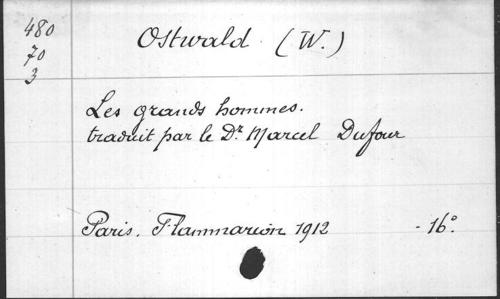 480
70
3
Ostwald (W.)
Les grands hommes.
traduit par le Dr Marcel Dufour
Paris. Flammarion 1912 - 16°